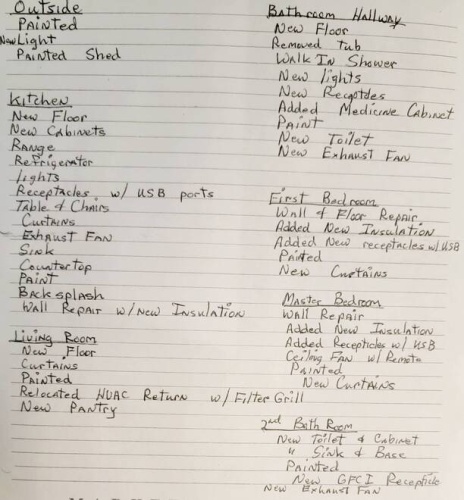 Outside
Painted
New Light
Painted Shed
Kitchen
New Floor
New Cabinets
Range
Refrigerator
Lights
Receptacles w/ USB ports
Table & Chairs
Curtains
Exhaust Fan
Sink
Countertop
Paint
Backsplash
Wall Repair w/New Insulation
Living Room
New Floor
Curtains
Painted
Relocated HVAC Return w/ Filter Grill
New Pantry
Bathroom Hallway
New Floor
Removed Tub
Walk In Shower
New lights
New
Added Medicine Cabinet
Paint
New Toilet
New Exhaust Fan
First Bedroom
Wall & Floor Repair
Added New Insulation
Added New receptacles w/USB
Painted
New Curtains
Master Bedroom
Wall Repair
Added New Insulation
Added Recepticles w/ USB
Ceiling Fan w/ Remote
Painted
New Curtains
2nd Bath Room
New Toilet & Cabinet
" Sink & Base
Painted
New GFCI Recepticle
New Exhaust Fan